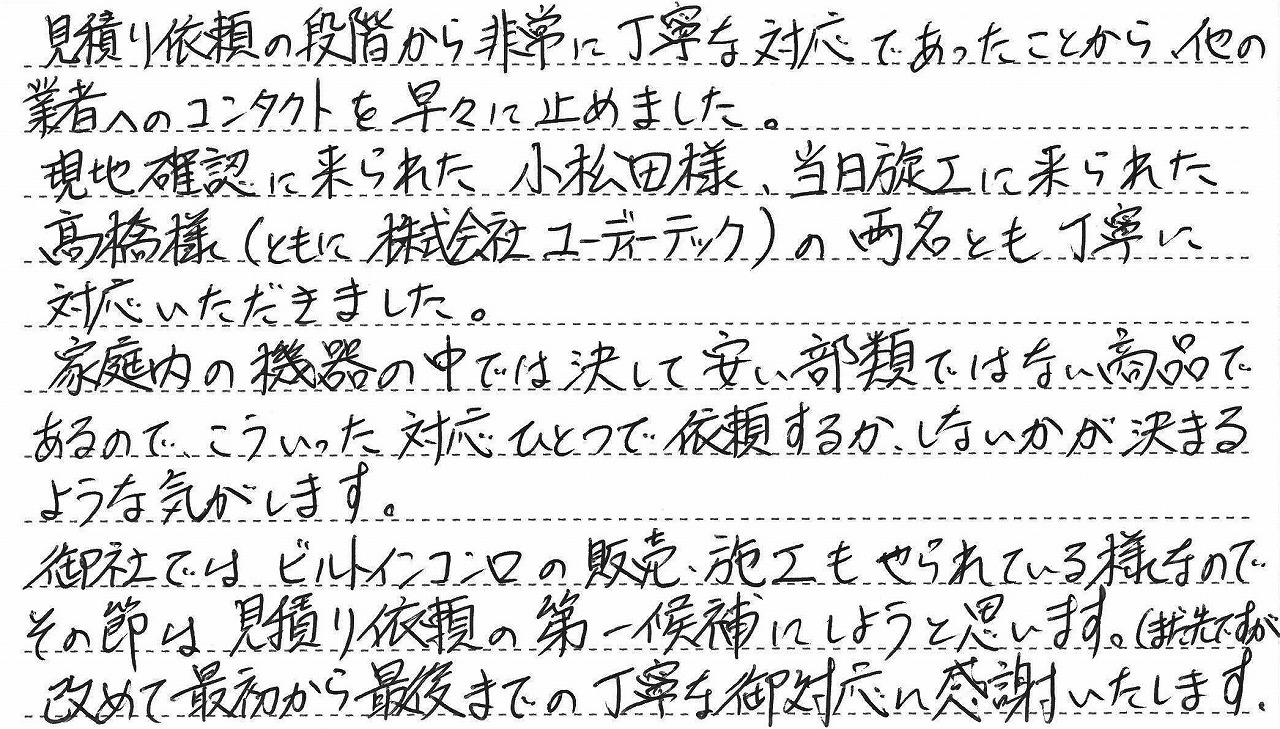 見積り依頼の段階から非常に丁寧な対応であったことから、他の
業者へのコンタクトを早々に止めました。
現地確認に来られた 小松田様、当日施工に来られた
高橋様(ともに 株式会社 ユーディーテック)の 両名とも丁寧に
対応いただきました。
家庭内の機器の中では決して安い部類ではない商品で
あるので、こういった対応ひとつで依頼するか、しないかが決まる
ような気がします。
御社ではビルトインコンロの販売、施工もやられている様なので
その節は見積り依頼の第一候補にしようと思います。(まだ先ですが
改めて最初から最後までの丁寧な御対応に感謝いたします。